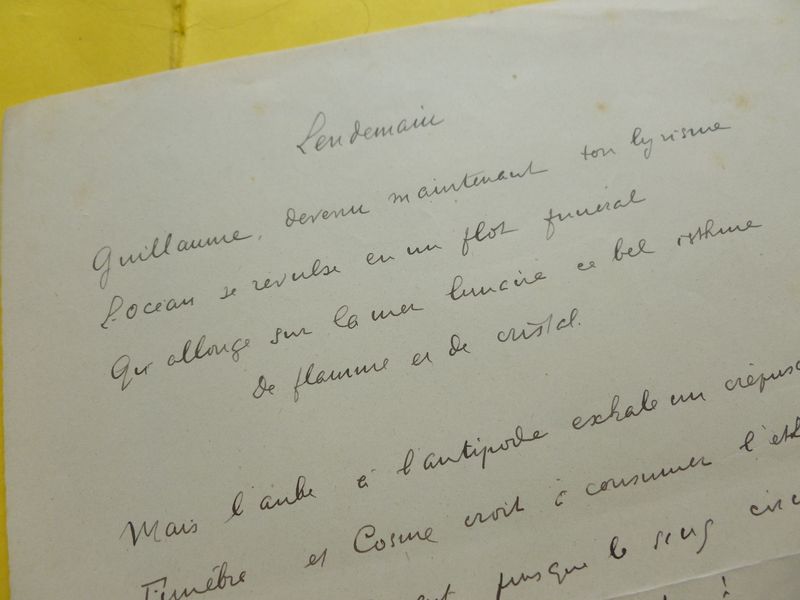 Lendemain
Guillaume, devenu maintenant ton lyrisme
L'océan se révulse en un flot funéral
Qui allonge sur la mer lunaire ce bel isthme
de flamme et de cristal.
Mais l'aube à l'antipode exhale un crépusc
et Cosme croit à consumer l'eth
presque le sang circ